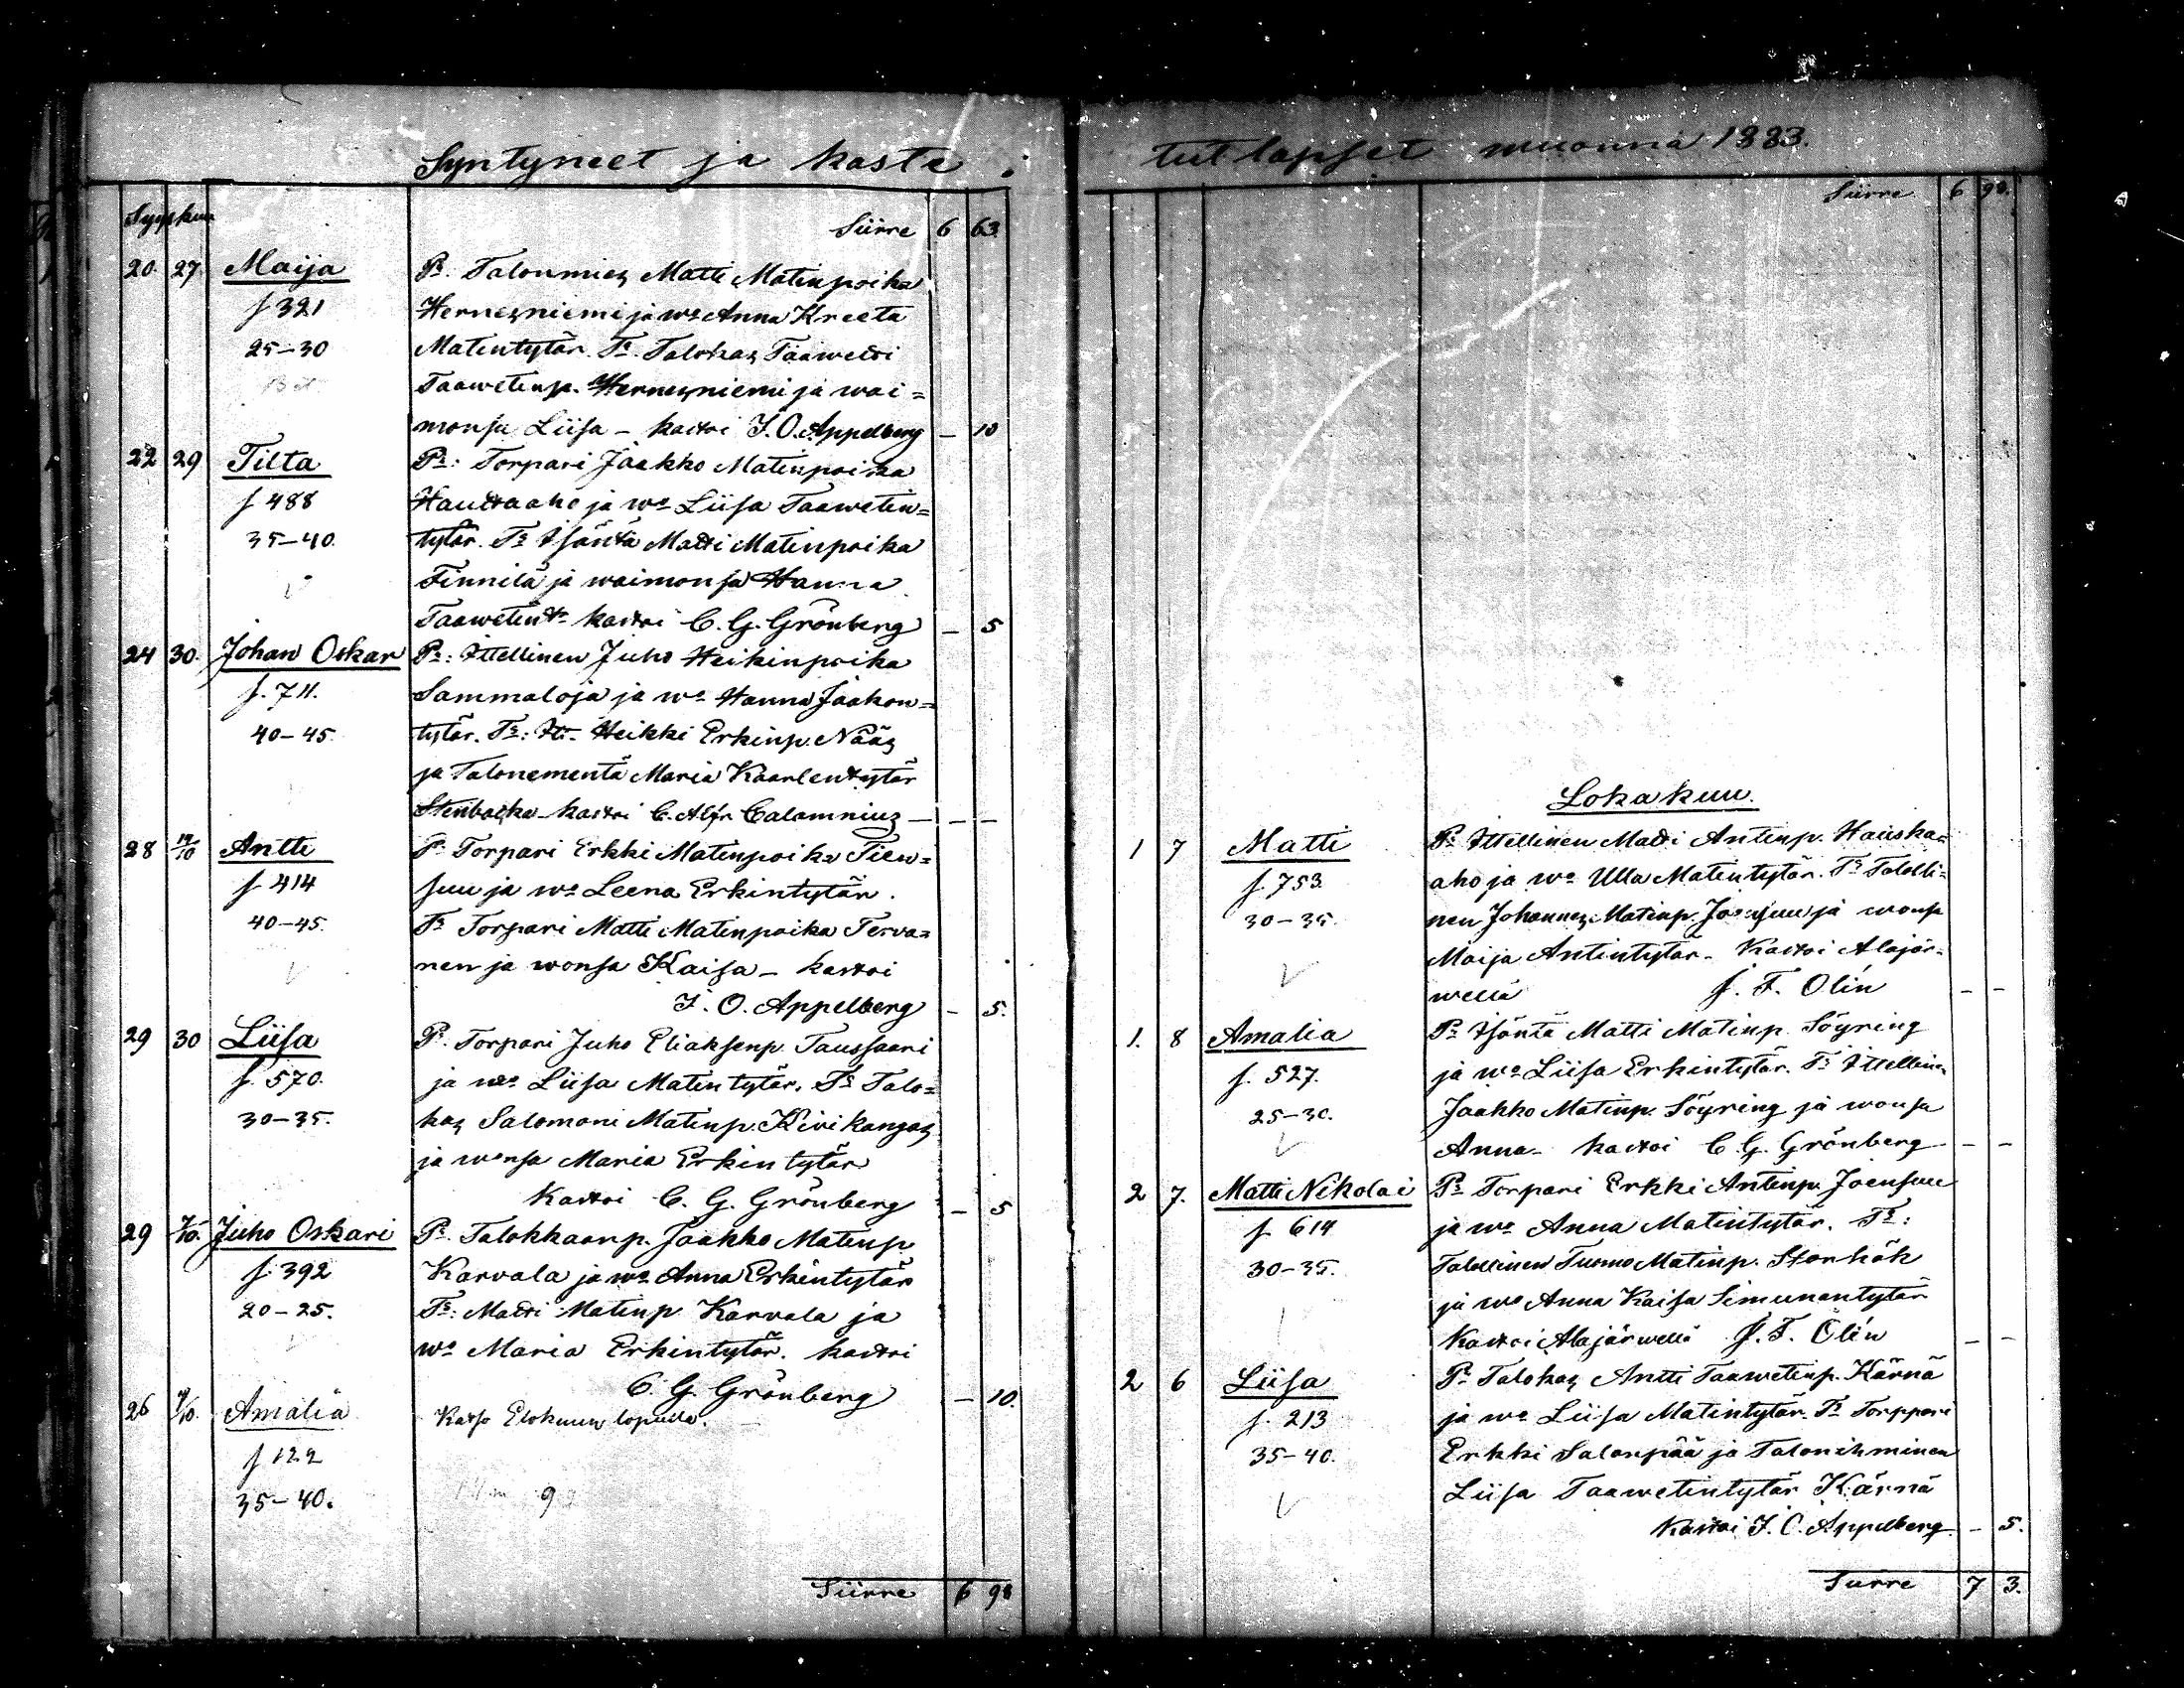 Syntyneet ja kaste
Syyskuu
Siirre 6 63.
20. 27. Maija P:. Talonmies Matti Matinpoika
f 321 Hernesniemi ja wo Anna Kreeta
25–30 Matintytär. T:. Talokas Taawetti
Taawetinp. Hernesniemi ja wai=
monsa Liisa – kastoi J. O. Appelberg – 10
22 29 Tilta P:: Torpari Jaakko Matinpoika
f 488 Hautaaho ja wo Liisa Taawetin=
35–40. tytär. T: Isäntä Matti Matinpoika
Finnilä ja waimonsa Hanna
Taawetint: kastoi C. G. Grönberg – 5
24 30. Johan Oskar P:: Itellinen Juho Heikinpoika
f. 711. Sammaloja ja wo Hanna Jaakon=
40–45. tytär. T:: It:. Heikki Erkinp. Nääs
ja Talonementä Maria Kaarlentytär
Stenbacka kastoi C. Alfr Calamnius – – –
28 14/10 Antti P: Torpari Erkki Matinpoika Tien=
f 414 suu ja wo Leena Erkintytär.
40–45. T: Torpari Matti Matinpoika Terva=
nen ja wonsa Kaisa – kastoi
J. O. Appelberg – 5.
29 30 Liisa P:. Torpari Juho Eliaksenp. Taussaari
f. 570. ja wo Liisa Matintytär. T: Talo=
30–35. kas Salomoni Matinp. Kivikangas
ja wonsa Maria Erkintytär
Kastoi C. G. Grönberg – 5
29 7/10. Juho Oskari P:. Talokkaanp. Jaakko Matinp
f. 392 Karvala ja wo Anna Erkintytär
20–25. T:: Matti Matinp Karvala ja
wo Maria Erkintytär. kastoi
C. G. Grönberg – 10.
26 9/10. Amalia Katso Elokuun lopulla.
f 122
35–40. 9
Siirre 6 98
tut lapset wuonna 1883.
Siirre 6 98.
Lokakuu.
1 7 Matti P: Itellinen Matti Antinp. Hauska=
f. 753. aho ja wo Ulla Matintytär. T: Talolli=
30–35. nen Johannes Matinp. Joensuu ja wonsa
Maija Antintytär. Kastoi Alajär=
wellä J. F. Olin – –
1. 8 Amalia P: Isäntä Matti Matinp Söyring
f. 527. ja wo Liisa Erkintytär. T: Itellinen
25–30. Jaakko Matinp. Söyring ja wonsa
Anna. kastoi C. G. Grönberg – –
2 7. Matti Nikolai P: Torpari Erkki Antinp. Joensuu
f 614 ja wo Anna Matintytär. T::
30–35. Talollinen Tuomo Matinp. Storhök
ja wo Anna Kaisa Simunantytär
Kastoi Alajärwellä J. F. Olin – –
2 6 Liisa P: Talokas Antti Taawetinp. Kärnä
f. 213 ja wo Liisa Matintytär. T: Torppari
35–40. Erkki Salonpää ja Talonihminen
Liisa Taawetintytär Kärnä
Kastoi J. O. Appelberg. – 5.
Siirre 7 3.